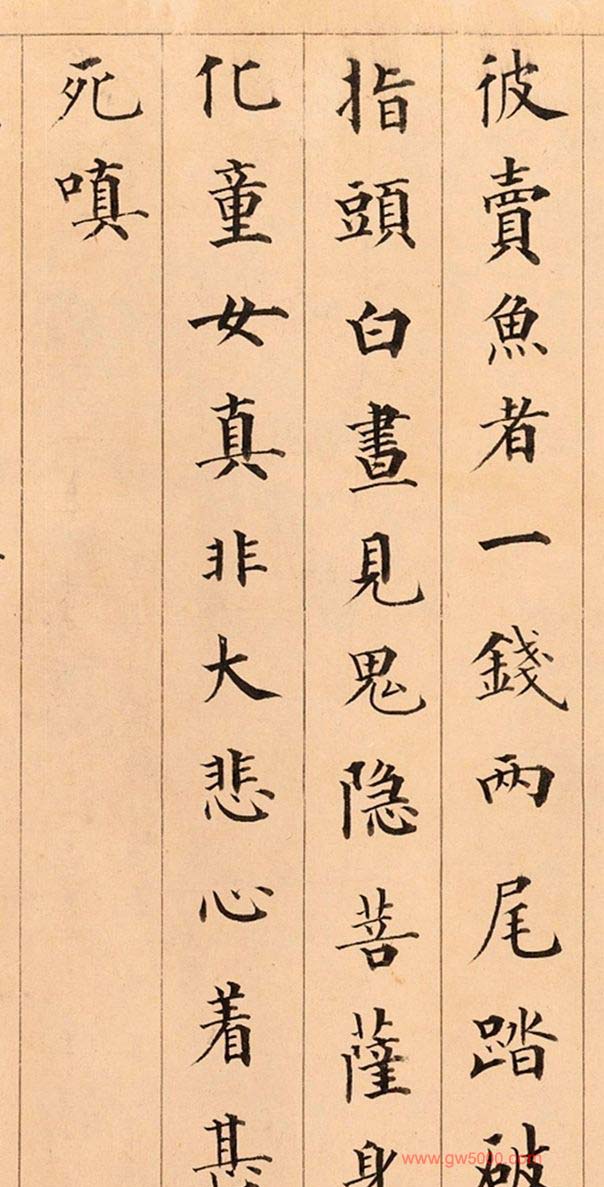 彼賣魚者一錢两尾踏破
指頭白晝見鬼隐菩薩身
化童女真非大悲心着甚
死嗔
www.gw5000.com